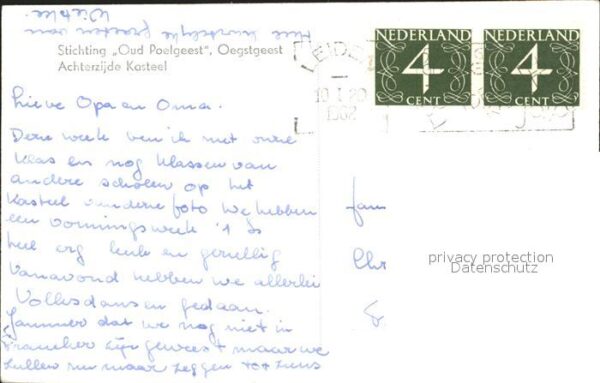 Stichting „Oud Poelgeest", Oegstgeest
Achterzijde Kasteel
Lieve Opa en Oma.
Deze week ben ik met onze
klas en nog klassen van
andere scholen op het
Kasteel van deze foto We hebben
een vormingsweek 't is
heel erg leuk en gezellig
Vanavond hebben we allerlei
Volksdansen gedaan.
Jammer dat we nog niet in
Franeker zijn geweest maar we
zullen nu maar zeggen tot ziens
Hele hartelijke groeten van
Wietske.
NEDERLAND
4
CENT
NEDERLAND
4
CENT
LEIDEN
Fam
privacy protection
Datenschutz